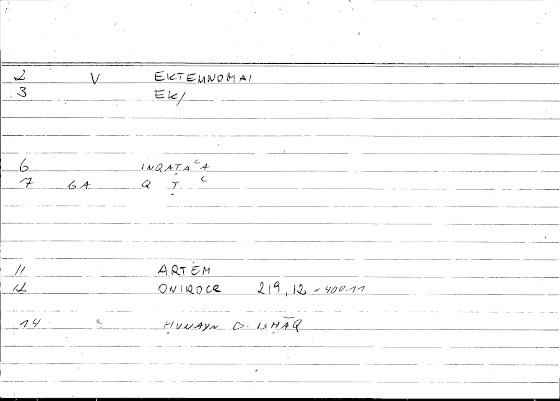 2 V EKTEMNOMAI
3 EK/
6 INQAṬAᶜA
7 7 6A Q Ṭ ᶜ
11 ARTEM
12 ONIROCR 219,12 - 400.11
14 ḤUNAYN B. ISḤĀQ